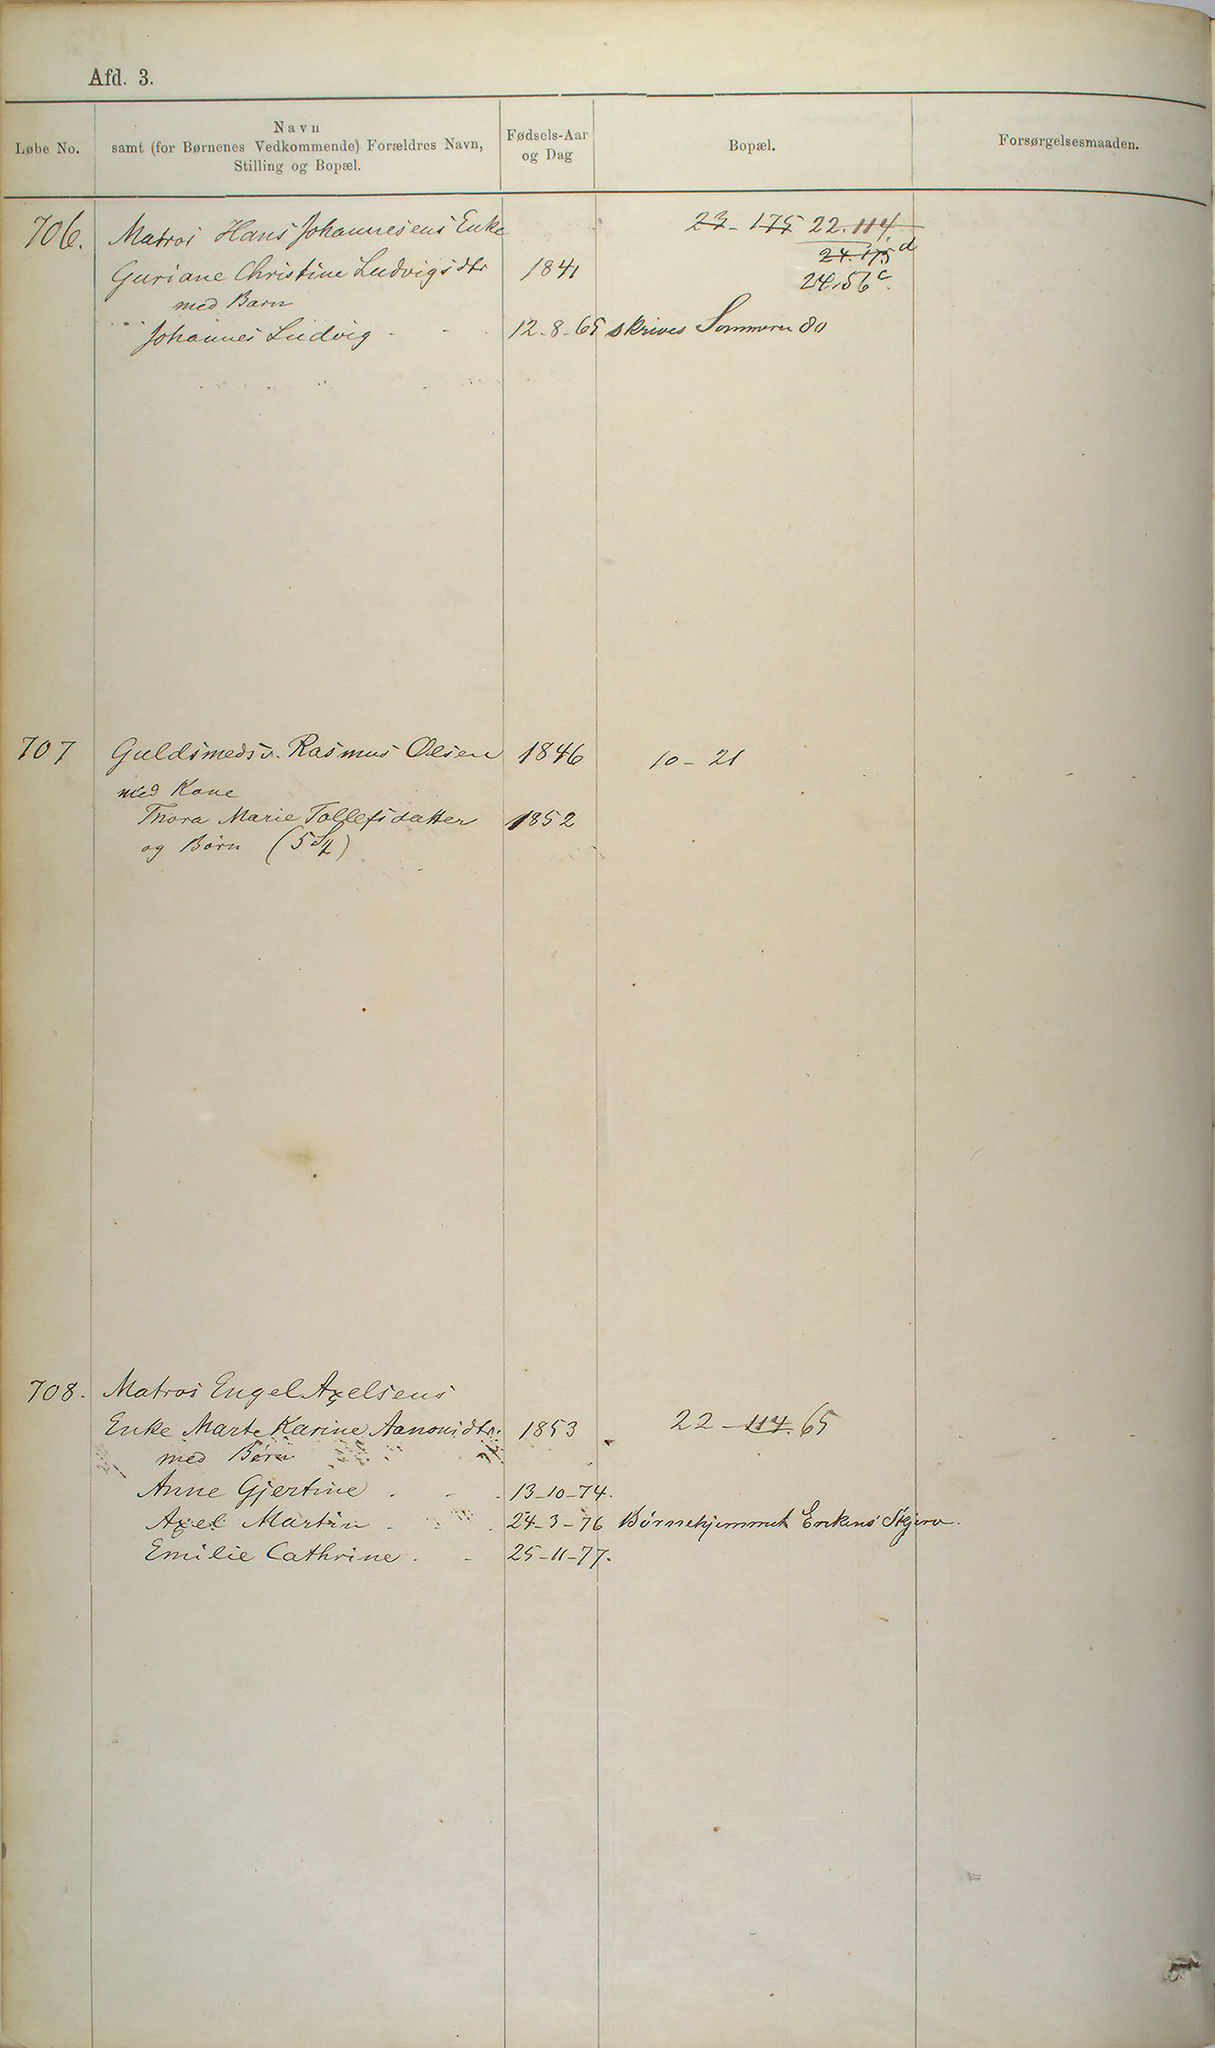 Afd. 3.
Løbe No.
Navn
samt (for Børnenes Vedkommende) Forældres Navn,
Stilling og Bopæl.
Fødsels-Aar
og Dag
Bopæl.
Forsørgelsesmaaden.
706. Matros Hans Johannesens Enke 23-175 22.114.
24.175 d
Guriane Christine Ludvigsdtr 1841 24.56 c.
med Barn
Johannes Ludvig - - 12-8-65 skrives Sommeren 80
707 Guldsmedsv. Rasmus Olsen 1846 10-21
med Kone
Thora Marie Tollefsdatter 1852
og Børn (5 )
708. Matros Engel Axelsens
Enke Marte Karine Aanonsdtr. 1853 22-114. 65
med Børn
Anne Gjertine . - . 13-10-74.
Axel Martin . - . 24-3-76 Børnehjemmet Erkens
Emilie Cathrine . - 25-11-77.